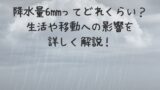 降水量6mmってどれくらい?
生活や移動への影響を
詳しく解説!